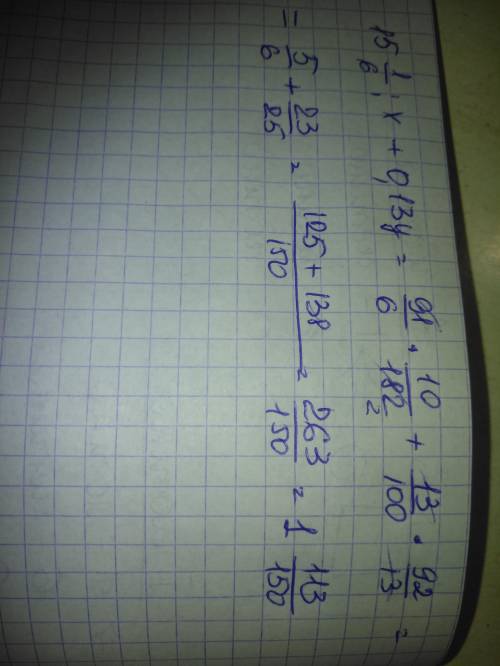 15 1/6 : x + 0,13y = 91/6 · 10/182 2 + 13/100 · 92/13 =
= 5/6 + 23/25 = (125 + 138)/150 = 263/150 = 1 113/150